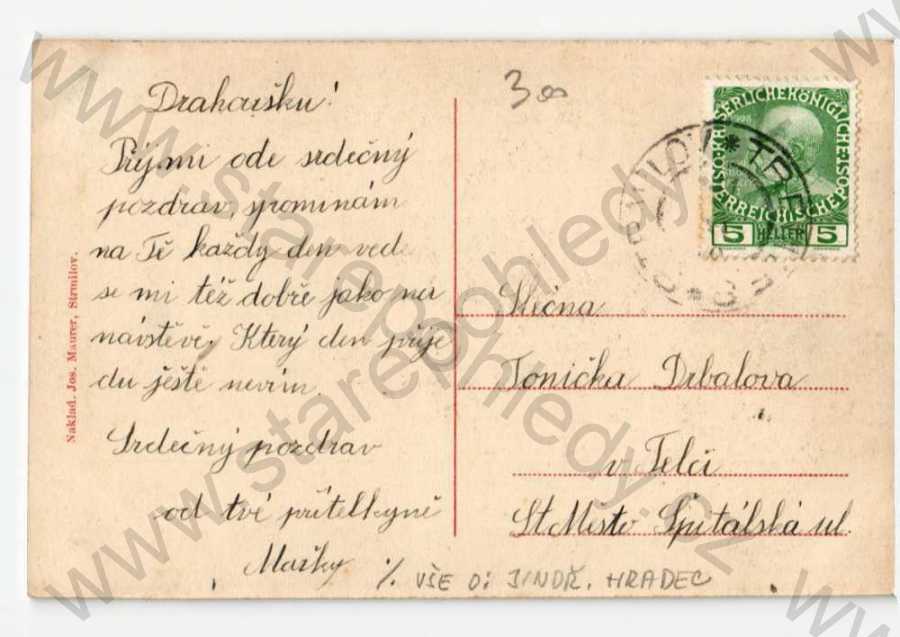 Drahoušku!
Přijmi ode srdečný
pozdrav, spomínám
na Tě každy den vede
se mi též dobře jako na
návstěvě, Který den přije
du ještě nevím.
Srdečný pozdrav
od tvé přítelkyně
Mařky
Naklad. Jos. Maurer, Strmilov.
300
1908
KAISERLICHE KÖNIGLICHE
ÖSTERREICHISCHE
5 HELLER 5
Slečna
Tonička Drbalova
v Telči
St Mesto Špitálská ul.
% VŠE O: JINDŘ. HRADEC
www.starepohledy.cz